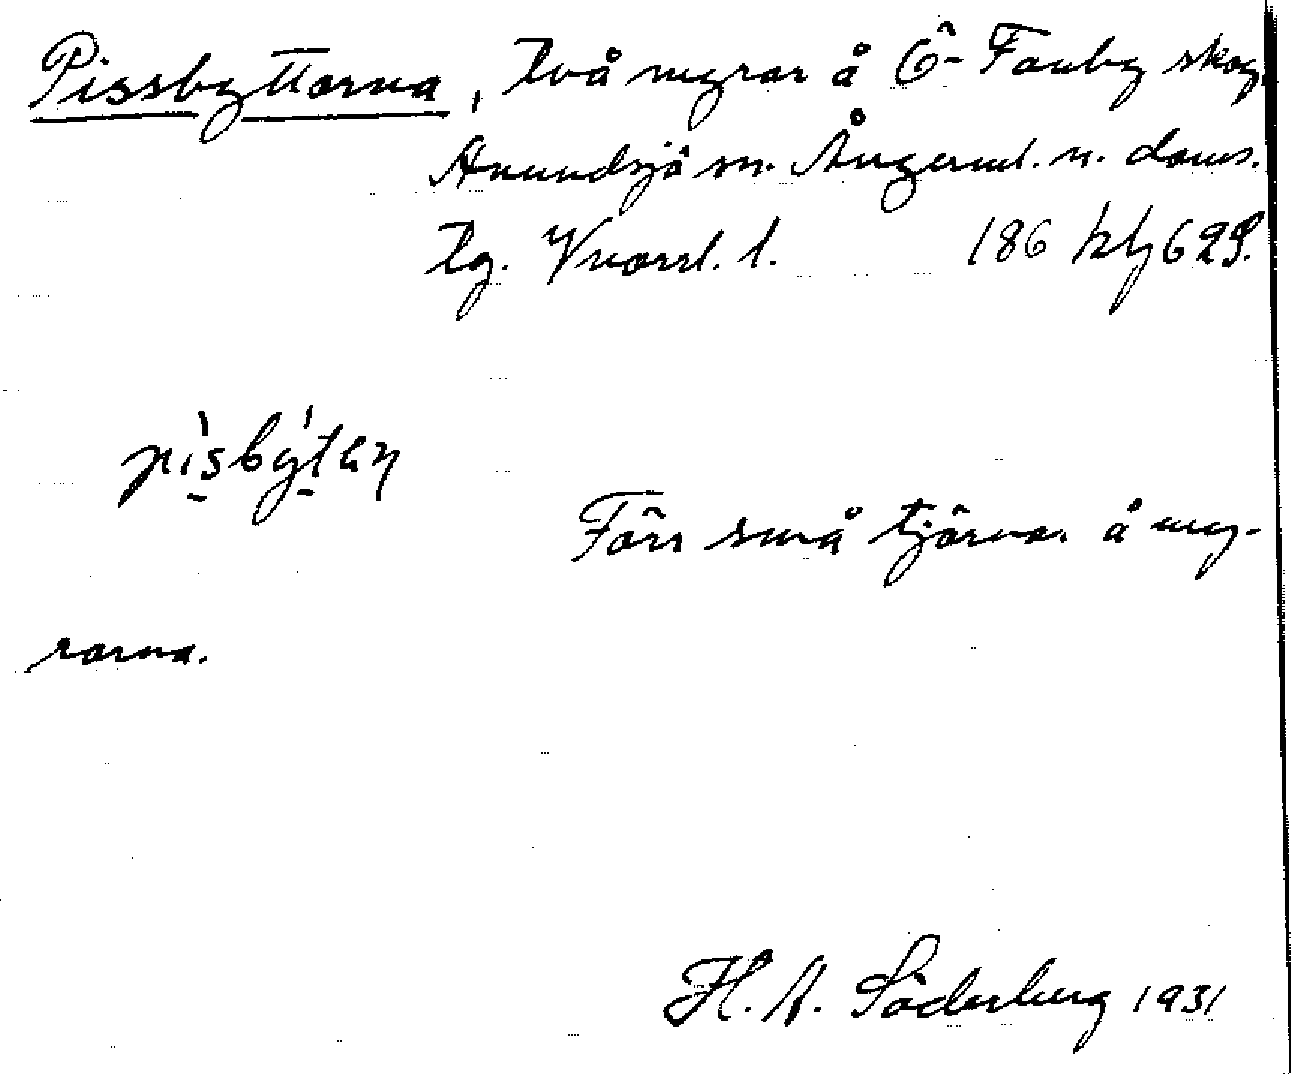 Pissbyttorna, två myrar å Ö-Tanby skog,
Anundsjö sn. Ångerml. n. doms.
Tg. Vvarsl. l. 186 klf 629.
pìsbýtɐɳ
Förr små tjärnar å my-
rarna.
H. A. Söderberg 1931